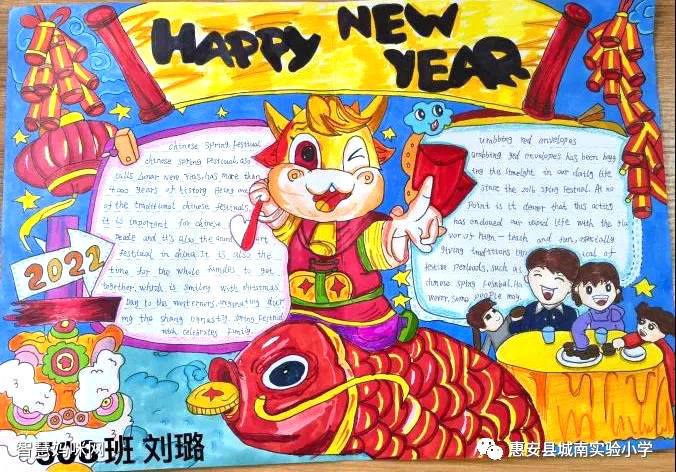 HAPPY NEW
YEAR
chinese spring festival
chinese spring Festival, also
calls Lunar New Years, has more than
4000 years of history. Being one
of the traditional chinese festivals,
it is important for chinese
people and it's also the
festival in china. It is also the
time for the whole families to get
together, which is similar with christmas
Day to the westerners, originating dur
ing the shang Dynasty, spring Festival
which celebrates family.
Grabbing red envelopes
Grabbing red envelopes has been hogg
ing the limelight in our daily life
since the 2014 spring Festival. At no
Point is it denor that this activity
has endowed our social life with the fla
vor of high-tech and fun, especially
giving traditions typical of
festive periods, such as
chinese spring Festival. Ho
wever, some people may
2022
506班 刘璐
智慧妈咪网
惠安县城南实验小学